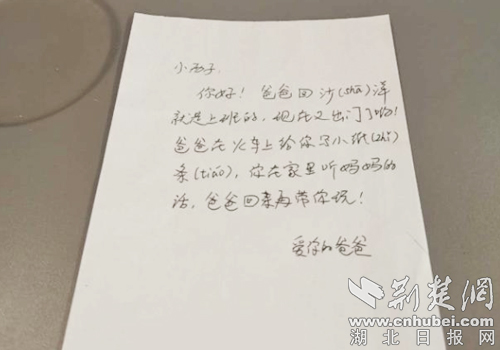 小西子,
你好！爸爸回沙(shā)洋
就是上班的,现在又出门了哟!
爸爸在火车上给你写小纸(zhǐ)
条(tiáo),你在家里听妈妈的
话,爸爸回来再带你玩!
爱你的爸爸
荆楚网
www.cnhubei.com
湖北日报网